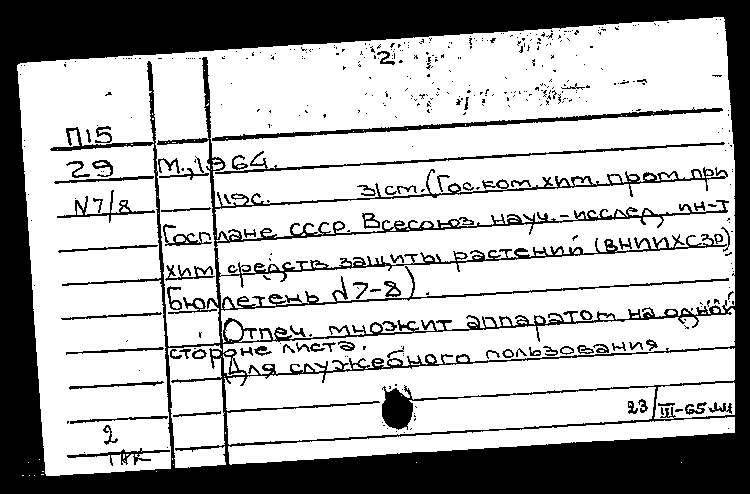 2.
П15
29 М., 1964.
N7/8 119с. 31 ст. (Гос.ком. хим. пром. при
Госплане СССР. Всесоюз. науч.-исслед. ин-т
хим средств защиты растений (ВНИИХСЗР)
Бюллетень N7-8).
Отпеч. множит аппаратом на одной
стороне листа.
Для служебного пользования.
23/III-65
2